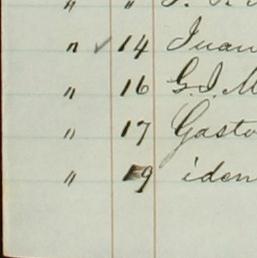 " "
" ✓ 14 Juan
" 16 G. I. M
" 17 Gasto
" 19 iden